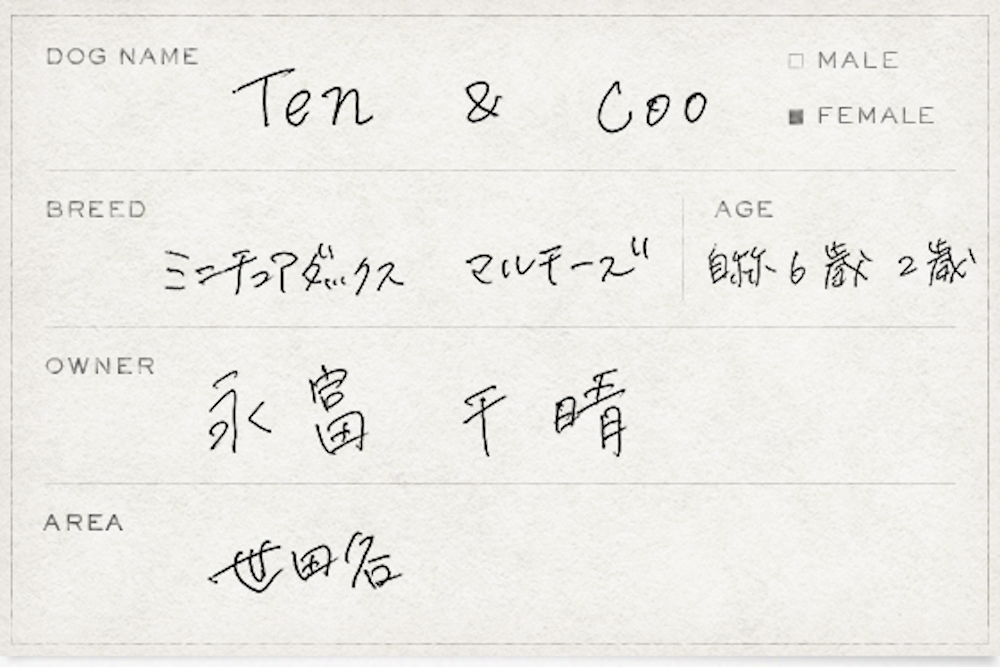 DOG NAME
Ten & Coo
□ MALE
■ FEMALE
BREED
ミニチュアダックス マルチーズ
AGE
自称6歳 2歳
OWNER
永富 千晴
AREA
世田谷